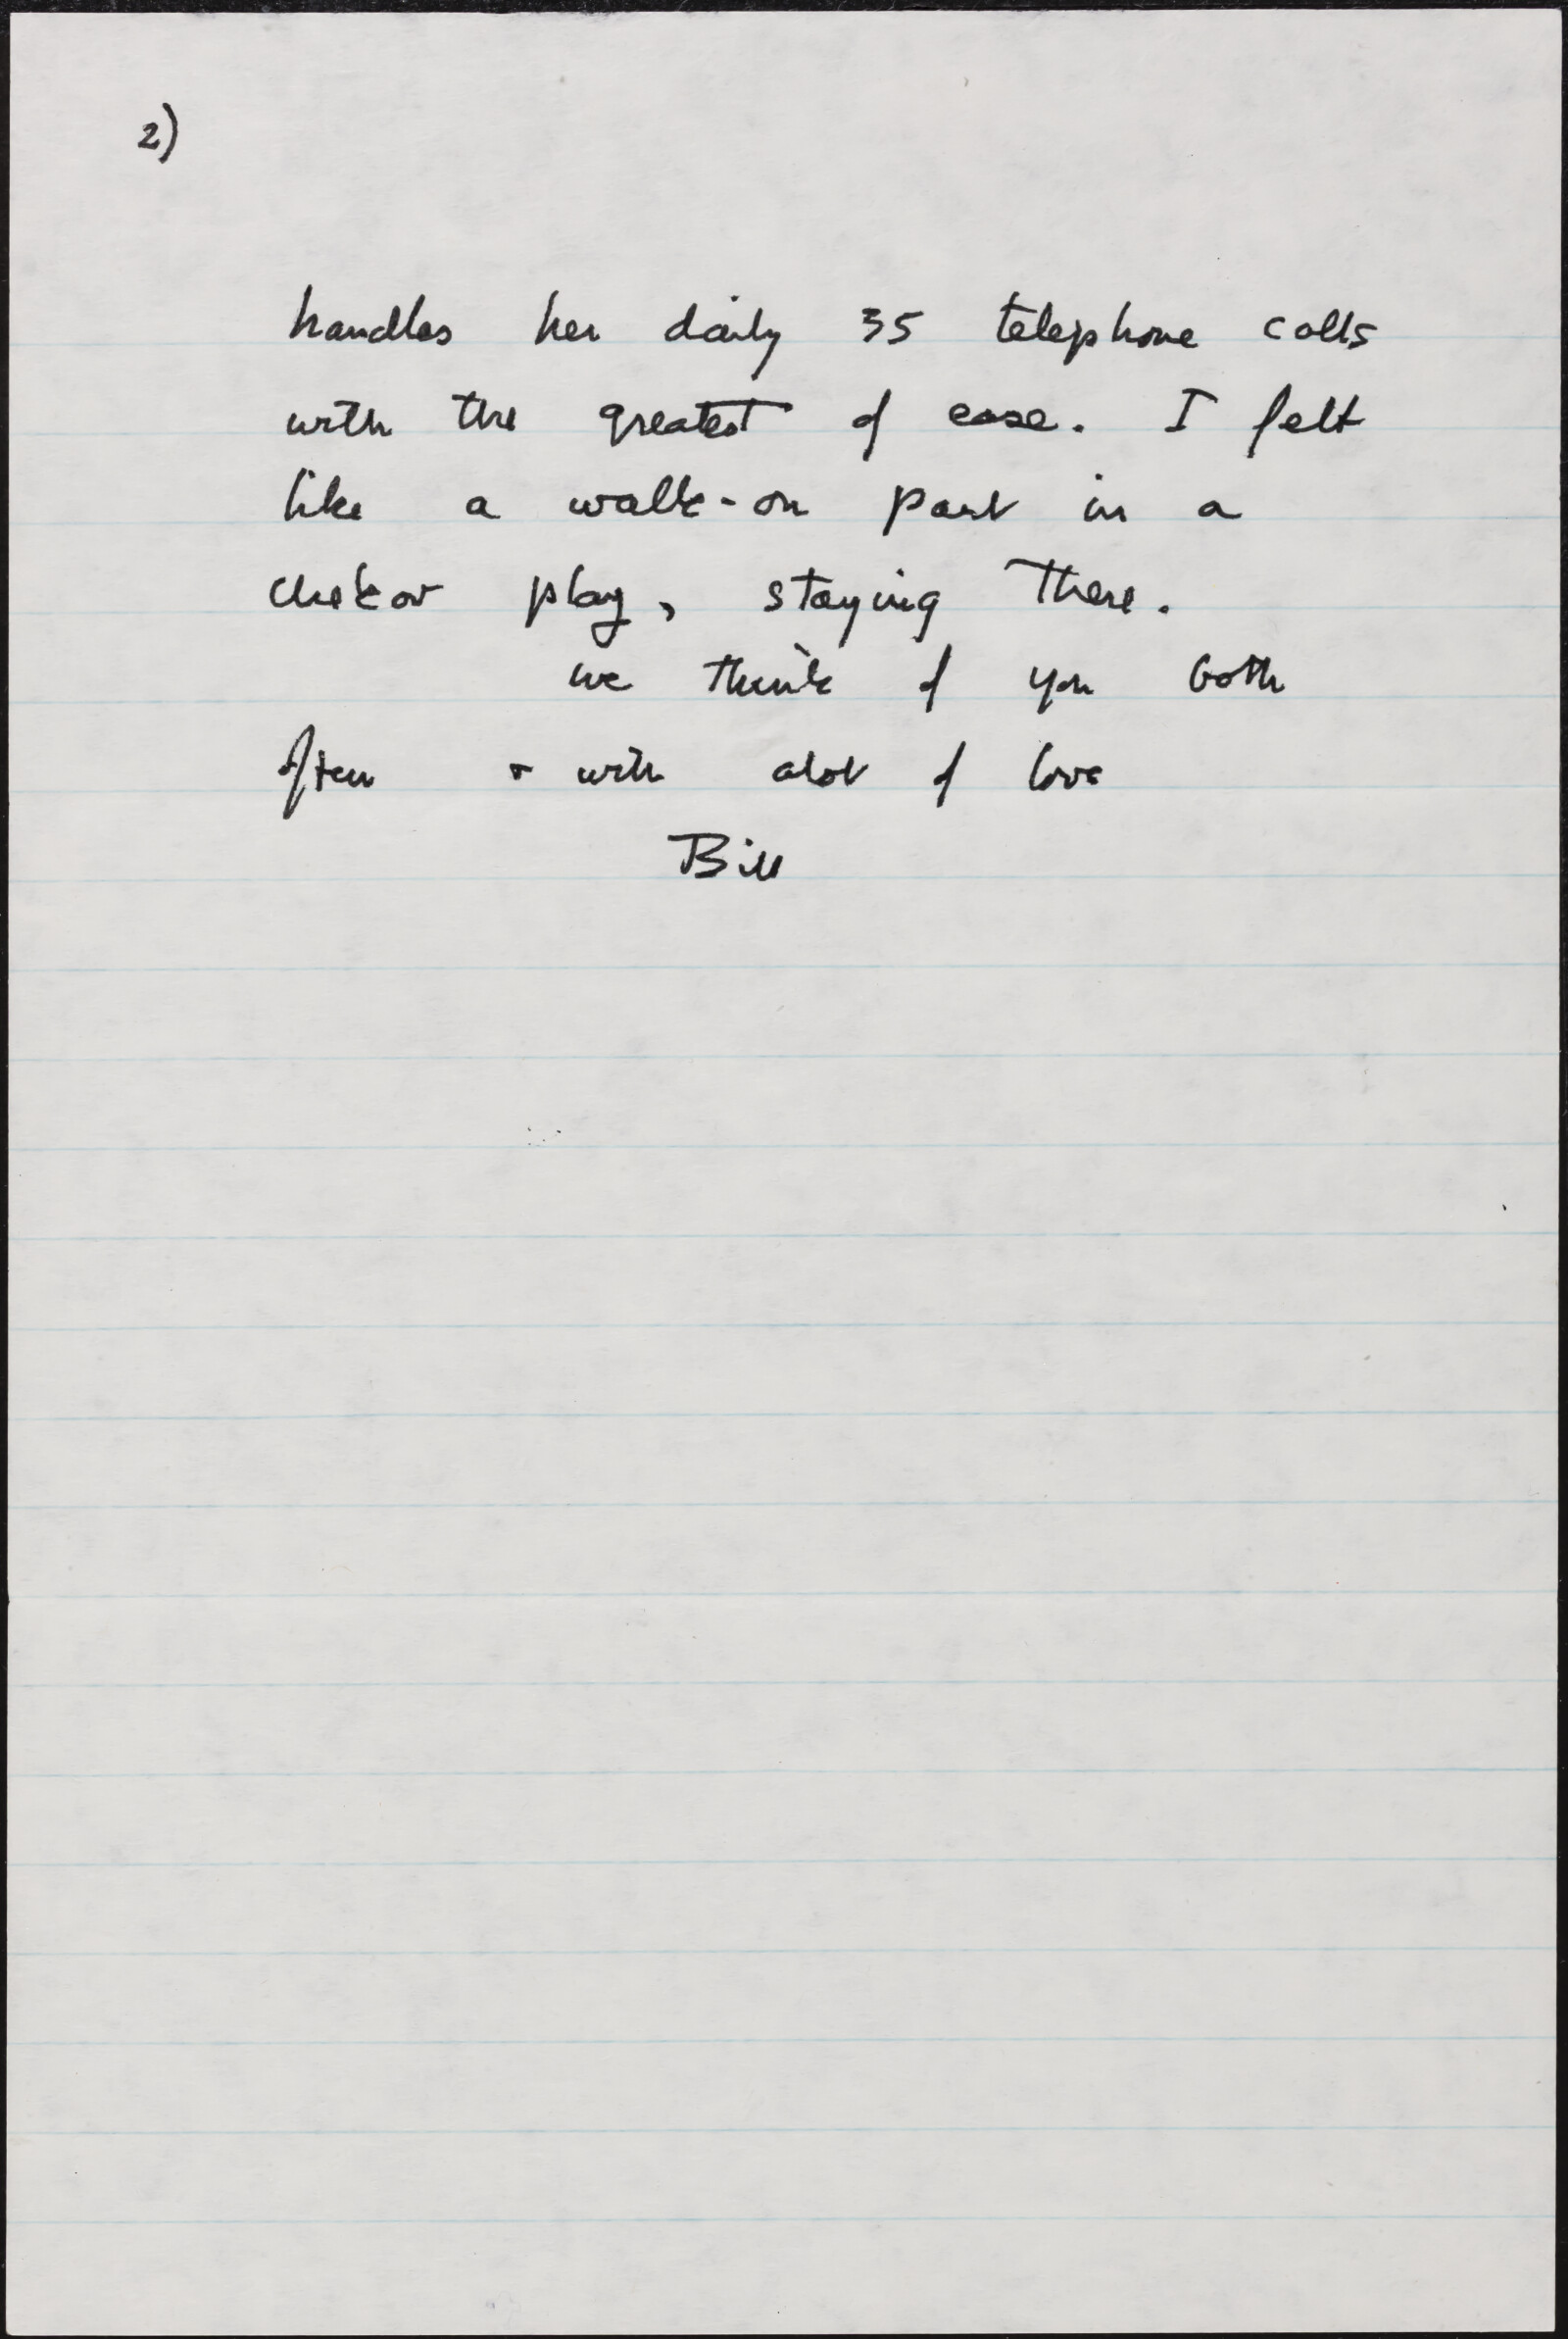 2)
handles her daily 35 telephone calls
with the greatest of ease. I felt
like a walk-on part in a
chekov play, staying there.
we think of you both
often + with alot of love
Bill